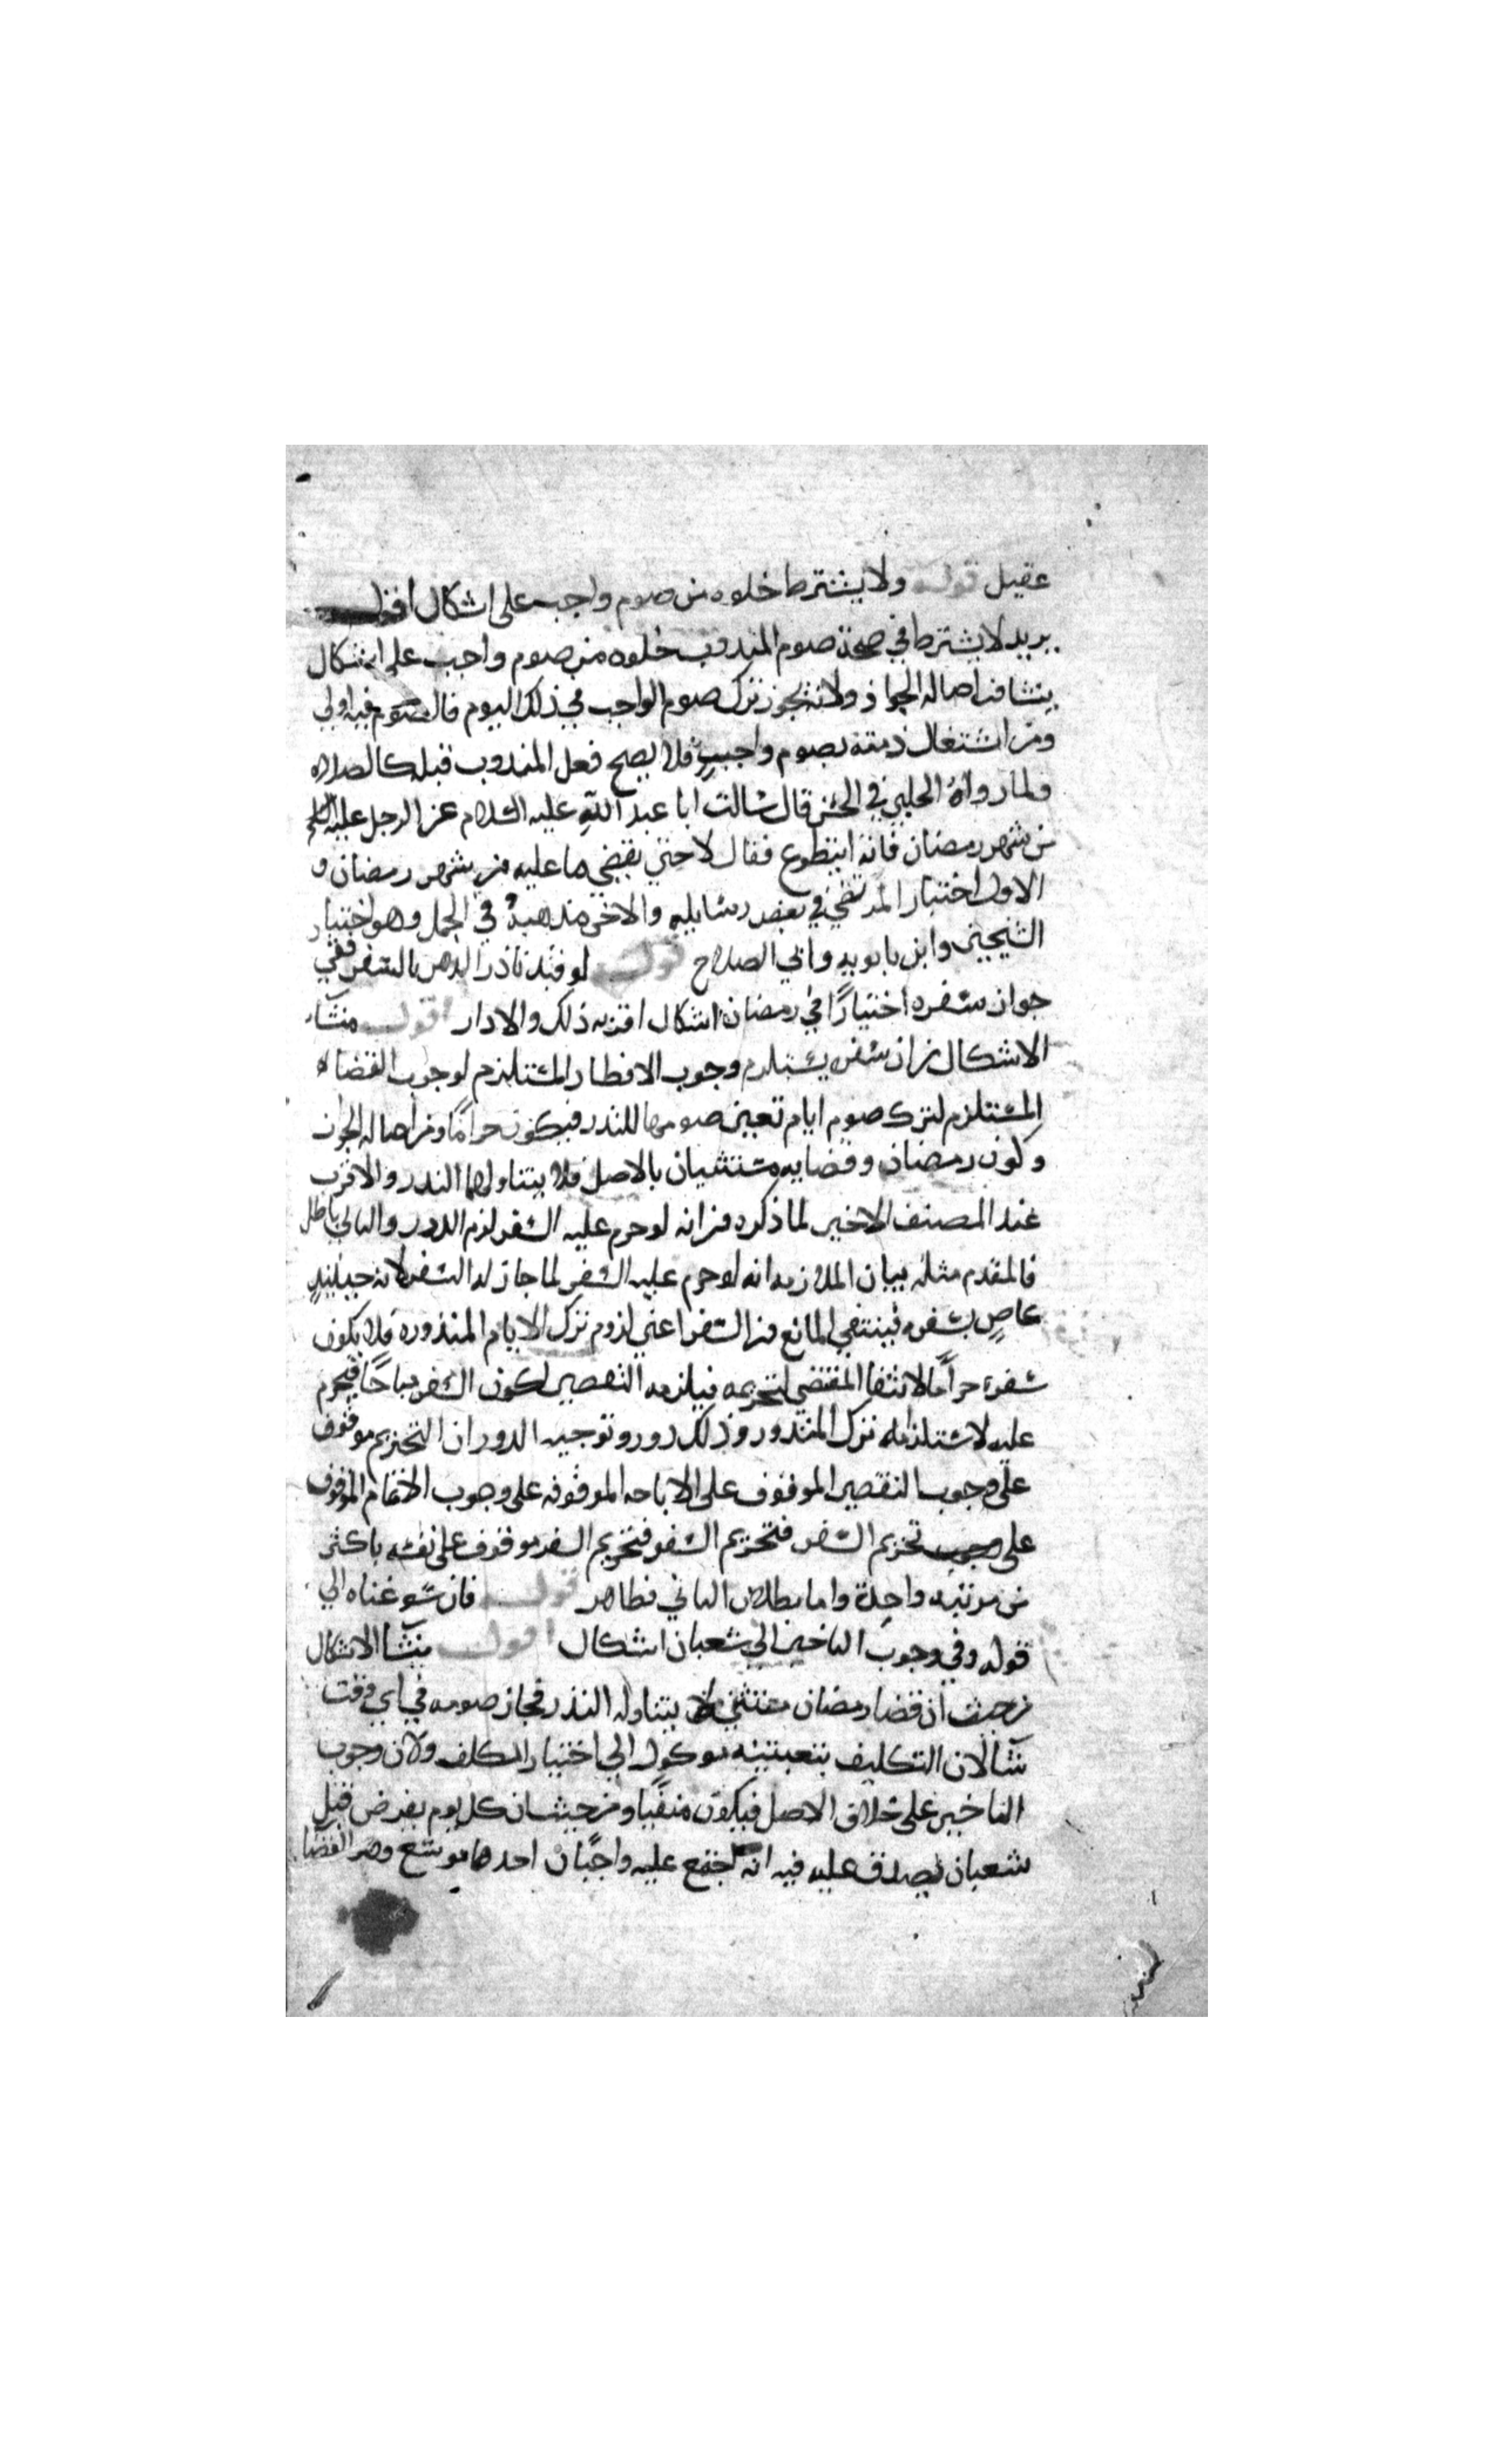 عقيل قوله ولا يشترط خلوه من صوم واجب على اشكال اقول
يريد لا يشترط في صحة صوم المندوب خلوه من صوم واجب على اشكال
ينشا من اصالة الجواز ولانه يجوز ترك صوم الواجب في ذلك اليوم فالصوم فيه اولى
ومن اشتغال ذمته بصوم واجب فلا يصح فعل المندوب قبله كالصلاه
ولما رواه الحلبي في الحسن قال سالت ابا عبد الله عليه السلام عن الرجل عليه
من شهر رمضان ايتطوع فقال لا حتى يقضي ما عليه من شهر رمضان و
الاول اختيار المرتضى في بعض رسايله والاخر مذهبه في الجمل وهو اختيار
الشيخين وابن بابويه وابي الصلاح قوله لو قيد ناذر الدهر بالسفر ففي
جواز سفره اختيارًا في رمضان اشكال اقربه ذلك والا دار اقول منشاء
الاشكال من ان سفره يستلزم وجوب الافطار المستلزم لوجوب القضاء
المستلزم لترك صوم ايام تعين صومها للنذر فيكون حرامًا ومن اصالة الجواز
وكون رمضان وقضايه مستثنيان بالاصل فلا يتناولهما النذر والاقرب
عند المصنف الاخير لما ذكره من انه لو حرم عليه السفر لزم الدور والتالي باطل
فالمقدم مثله بيان الملازمه انه لو حرم عليه السفر لما جاز له السفر لانه حينيندٍ
عاصٍ بسفره فينتفي المانع من السفر اعني لزوم ترك الايام المنذورة فلا يكون
سفره حرامًا لانتفا المقتضي لتحريمه فيلزمه التقصير لكون السفر مباحًا فيحرم
عليه لاستلزامه ترك المنذور وذلك دور وتوجيه الدور ان التحريم موقوف
على وجوب التقصير الموقوف على الاباحه الموقوفه على وجوب الاتمام الموقوف
على تحريم السفر فتحريم السفر فتحريم السفر موقوف على نفسه باكثر
من مرتبه واحدة واما بطلان التالي فظاهر قوله فان سوغناه الي
قوله وفي وجوب التاخير الى شعبان اشكال اقول ينشا الاشكال
من حيث ان قضا رمضان مستثنى لا يتناوله النذر فجاز صومه في اي وقت
شا لان التكليف بتعيينه موكول الى اختيار المكلف ولان وجوب
التاخير على خلاف الاصل فيكون منفيًا ومن حيث ان كل يوم يفرض قبل
شعبان يصدق عليه فيه انه اجتمع عليه واجبان احدهما موسع وهو القضا